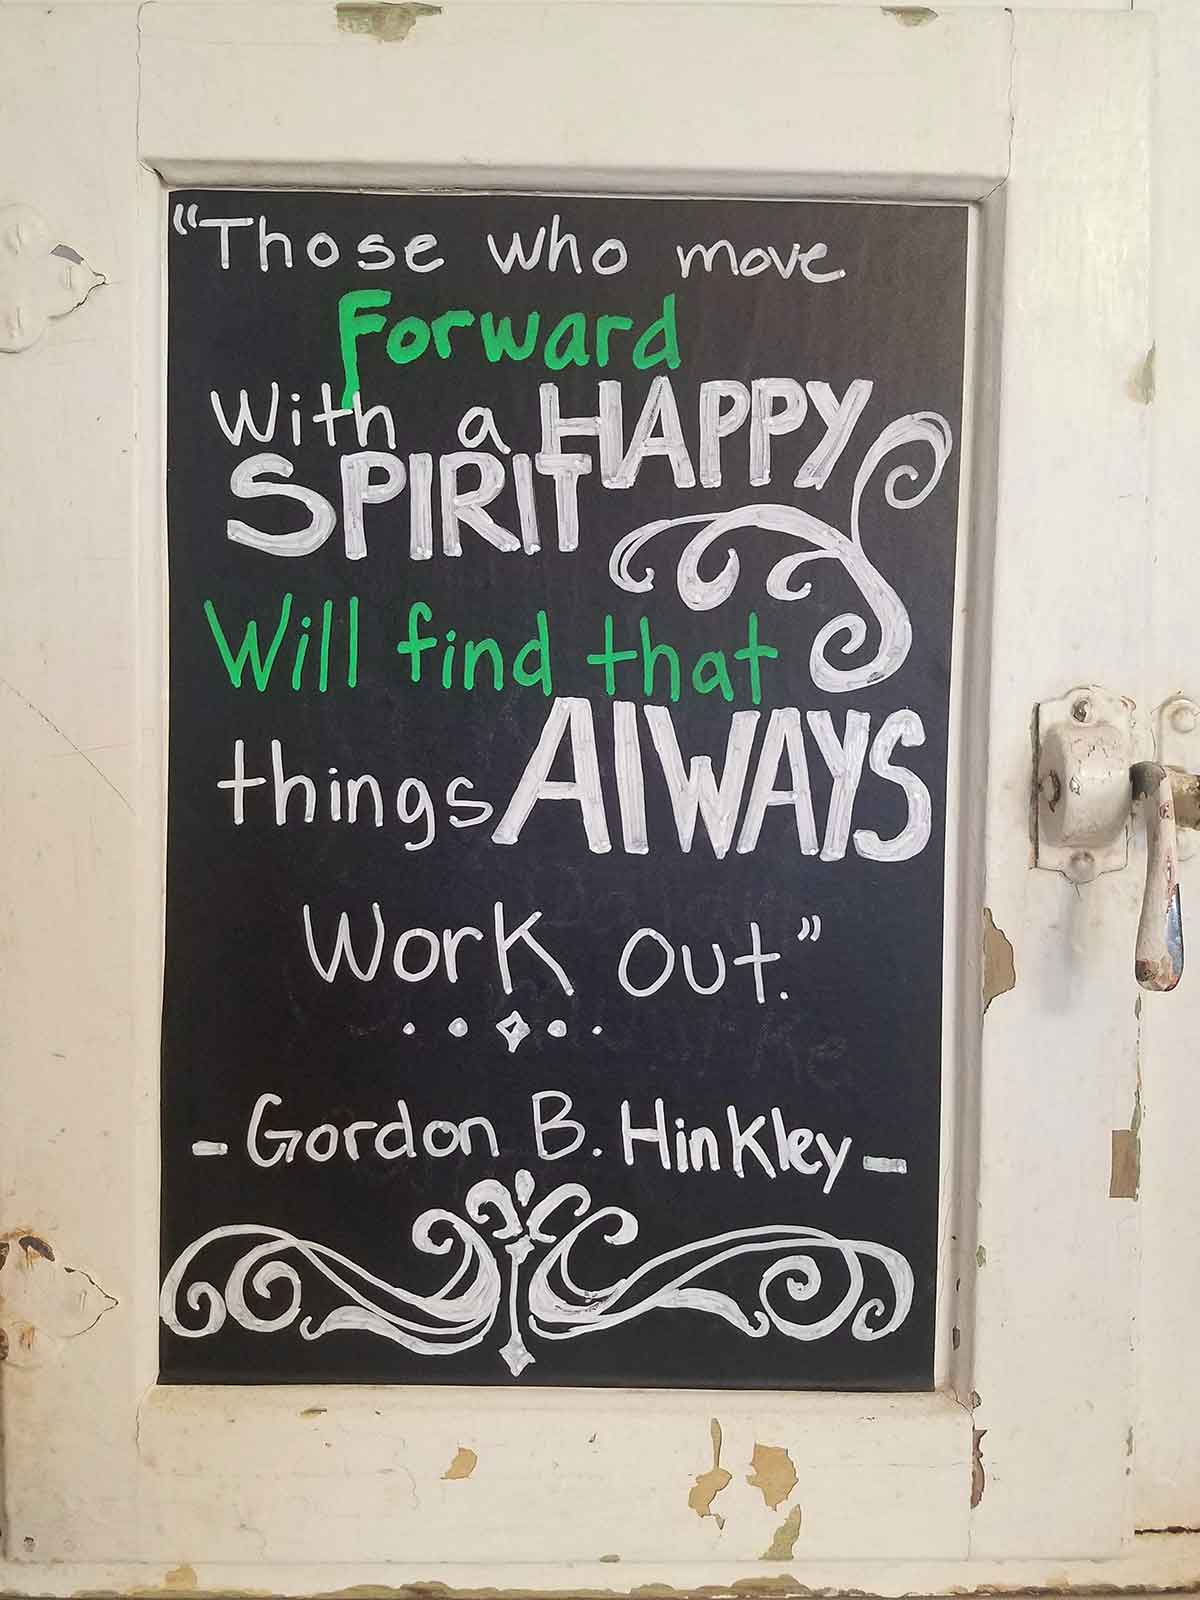 "Those who move
Forward
With a HAPPY
SPIRIT
Will find that
things AlWAYS
Work out."
- Gordon B. Hinkley -